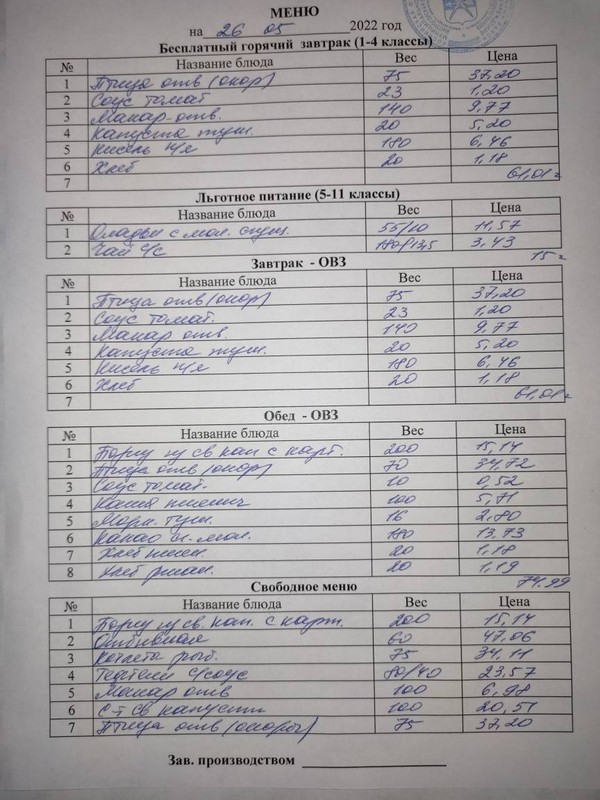 МЕНЮ
на 26 05 2022 год
Бесплатный горячий завтрак (1-4 классы)
№ Название блюда Вес Цена
1 Птица отв (окор) 75 37,20
2 Соус томат 23 1,20
3 Макар. отв. 140 9,77
4 Капуста туш. 20 5,20
5 Кисель п/я 180 6,46
6 Хлеб 20 1,18
7 61,01
Льготное питание (5-11 классы)
№ Название блюда Вес Цена
1 Оладьи с мол. сгущ. 55/10 11,57
2 Чай с/с 180/13,5 3,43
15
Завтрак - ОВЗ
№ Название блюда Вес Цена
1 Птица отв (окор) 75 37,20
2 Соус томат. 23 1,20
3 Макар отв. 140 9,77
4 Капуста туш. 20 5,20
5 Кисель п/я 180 6,46
6 Хлеб 20 1,18
7 61,01
Обед - ОВЗ
№ Название блюда Вес Цена
1 Борщ из св кап с карт. 200 15,14
2 Птица отв (окор) 70 34,72
3 Соус томат. 10 0,52
4 Каша пшенич 100 5,71
5 Морк. туш. 16 2,80
6 Какао мол. 180 13,73
7 Хлеб пшен. 20 1,18
8 Хлеб ржан. 20 1,19
74.99
Свободное меню
№ Название блюда Вес Цена
1 Борщ из св. кап. с карт. 200 15,14
2 Отбивная 60 47,06
3 Котлета рыб. 75 34,11
4 Тефтели с/соус 80/40 23,57
5 Макар отв 100 6,98
6 С-т св капусты 100 20,51
7 Птица отв (окороч) 75 37,20
Зав. производством